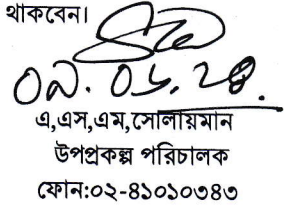 থাকবেন।
০৯.০৬.২৪
এ,এস,এম,সোলায়মান
উপপ্রকল্প পরিচালক
ফোন:০২-৪১০১০৩৪৩